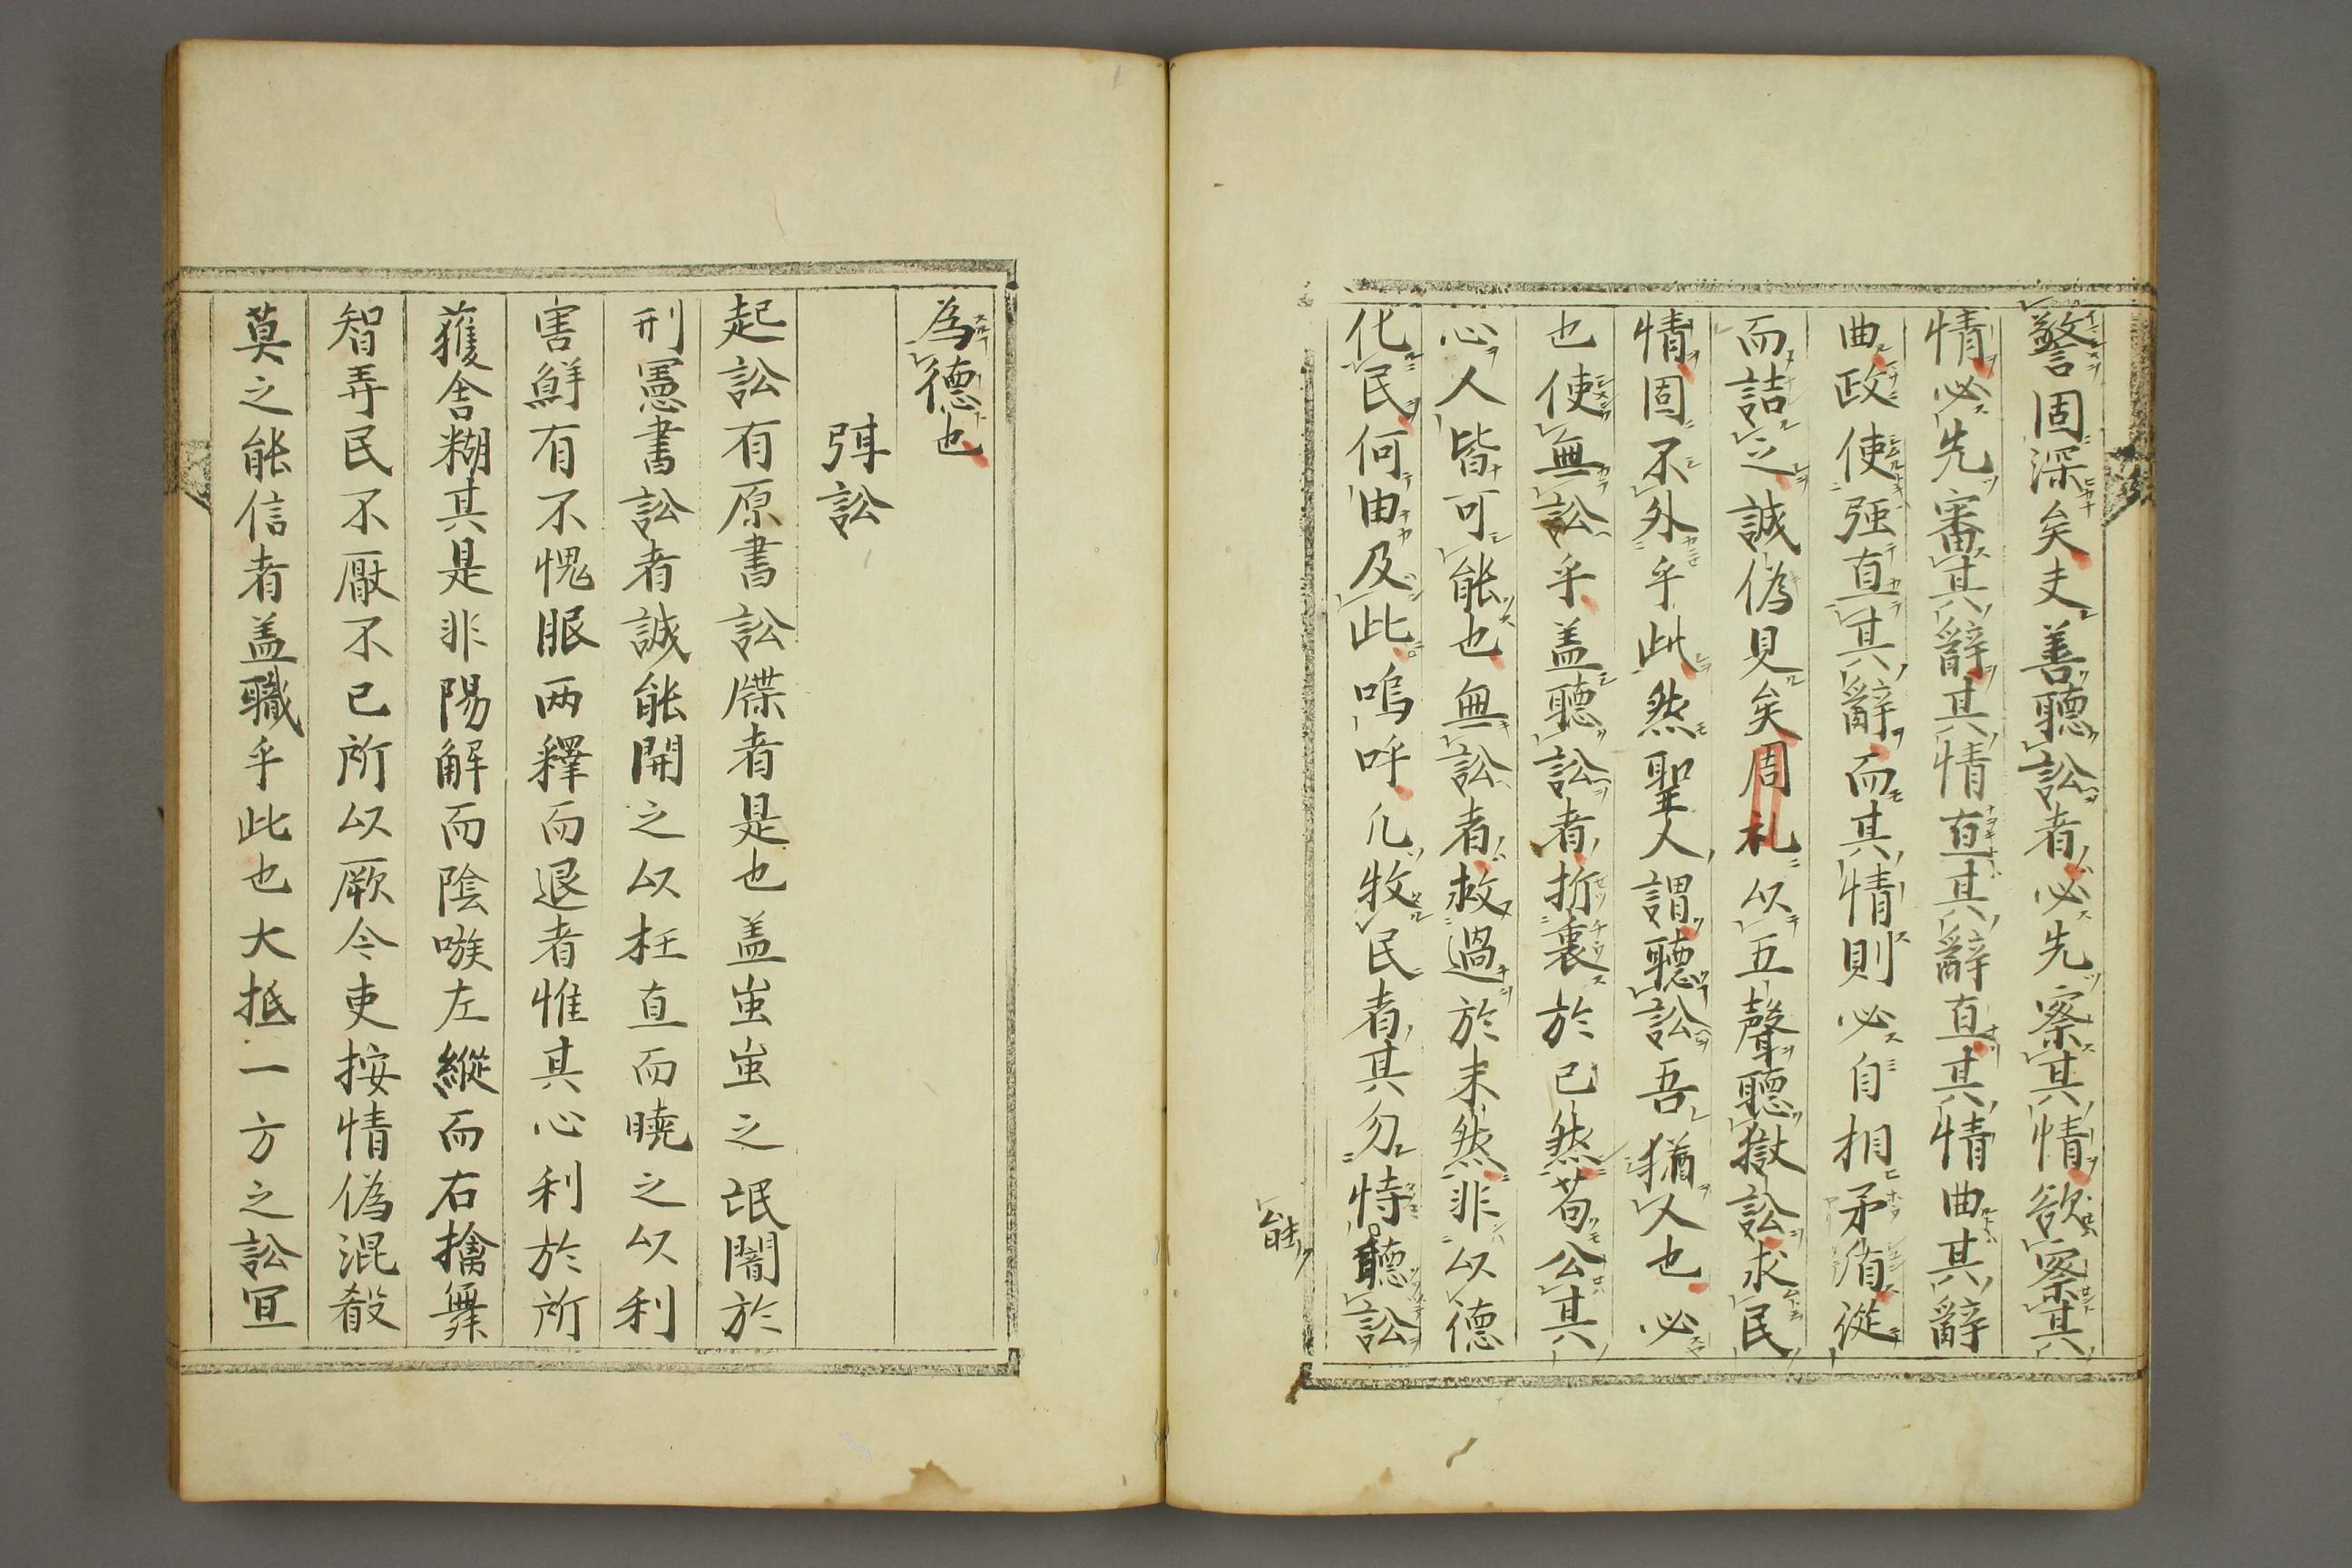 警固深矣夫善聽訟者必先察其情欲察其
情必先審其辭其情直其辭直其情曲其辭
曲政使强直其辭而其情則必自相矛盾從
而詰之誠偽見矣周礼以五聲聽獄訟求民
情固不外乎此然聖人謂聽訟吾猶人也必
也使無訟乎盖聽訟者折衷於已然苟公其
心人皆可能也無訟者救過於未然非以德
化民何由及此嗚呼凡牧民者其勿恃聽訟
能
為德也
弭訟
起訟有原書訟牒者是也盖蚩蚩之氓闇於
刑憲書訟者誠能開之以枉直而曉之以利
害鮮有不愧服两釋而退者惟其心利於所
獲含糊其是非陽解而陰嗾左縱而右擒舞
智弄民不厭不已所以厥今吏按情偽混殽
莫之能信者盖職乎此也大抵一方之訟宜